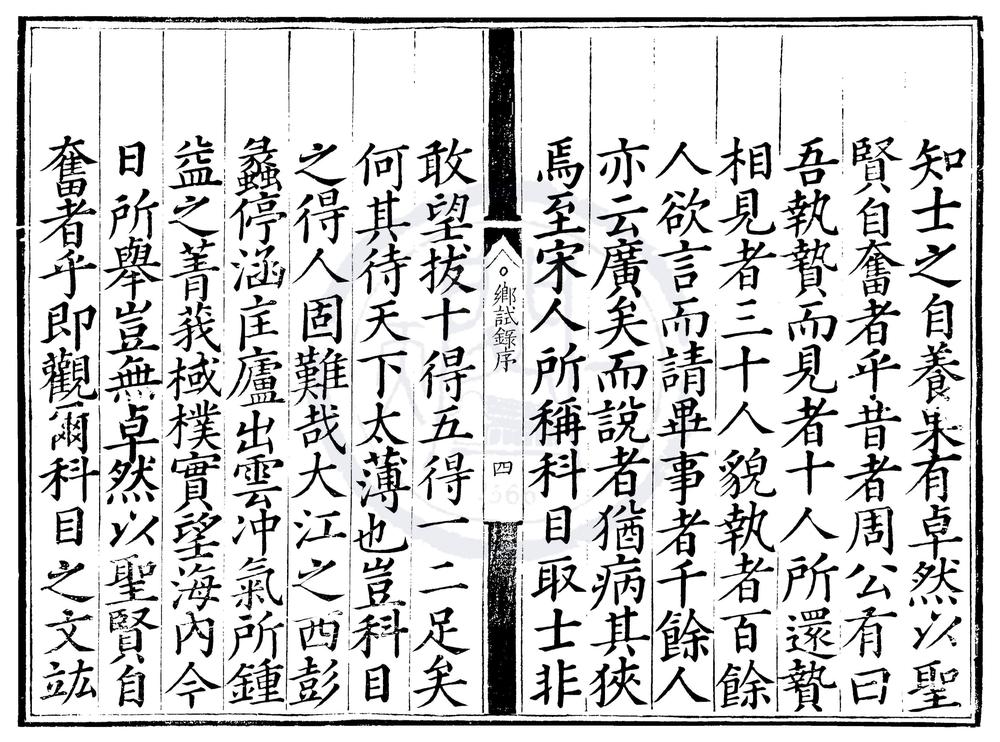 知士之自養果有卓然以聖
賢自奮者乎昔者周公有曰
吾執贄而見者十人所還贄
相見者三十人貌執者百餘
人欲言而請畢事者千餘人
亦云廣矣而說者猶病其狹
焉至宋人所稱科目取士非
鄉試錄序 四
敢望拔十得五得一二足矣
何其待天下太薄也豈科目
之得人固難哉大江之西彭
蠡停涵匡廬出雲冲氣所鍾
益之菁莪棫樸實望海內今
日所舉豈無卓然以聖賢自
奮者乎即觀爾科目之文竑